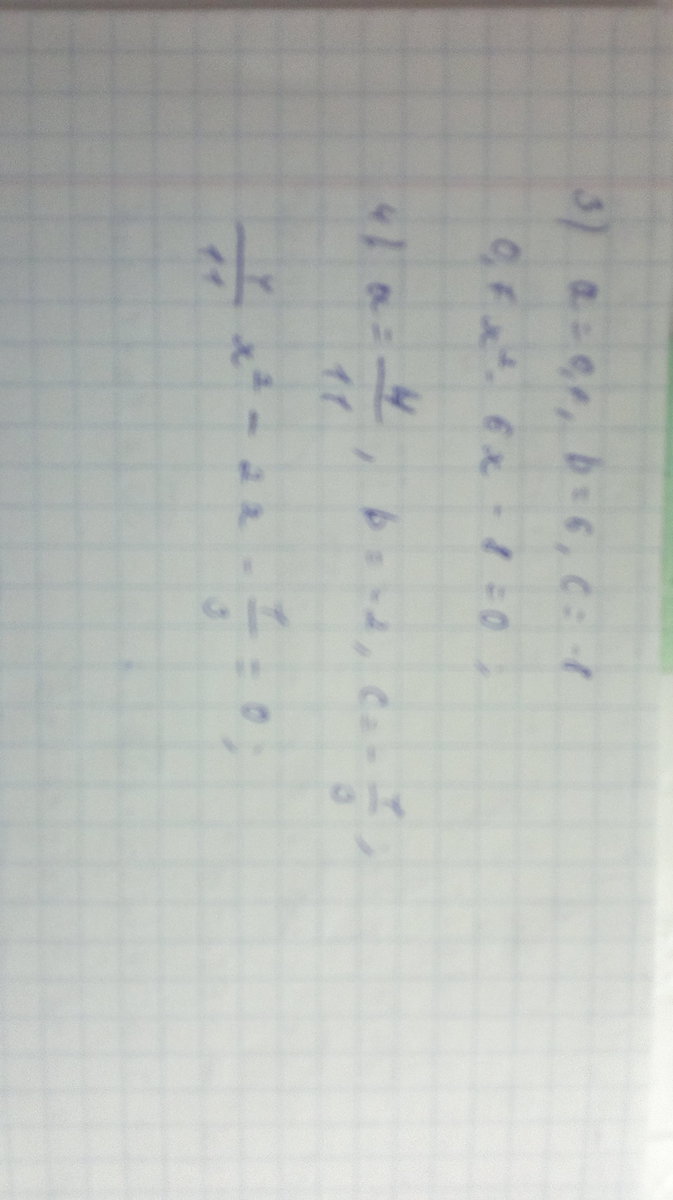 3) a = 0,1, b = 6, c = -8
0,1 x² - 6x - 8 = 0;
4) a = 4/11, b = -2, c = - 1/3;
x² - 2x - 1/3 = 0;